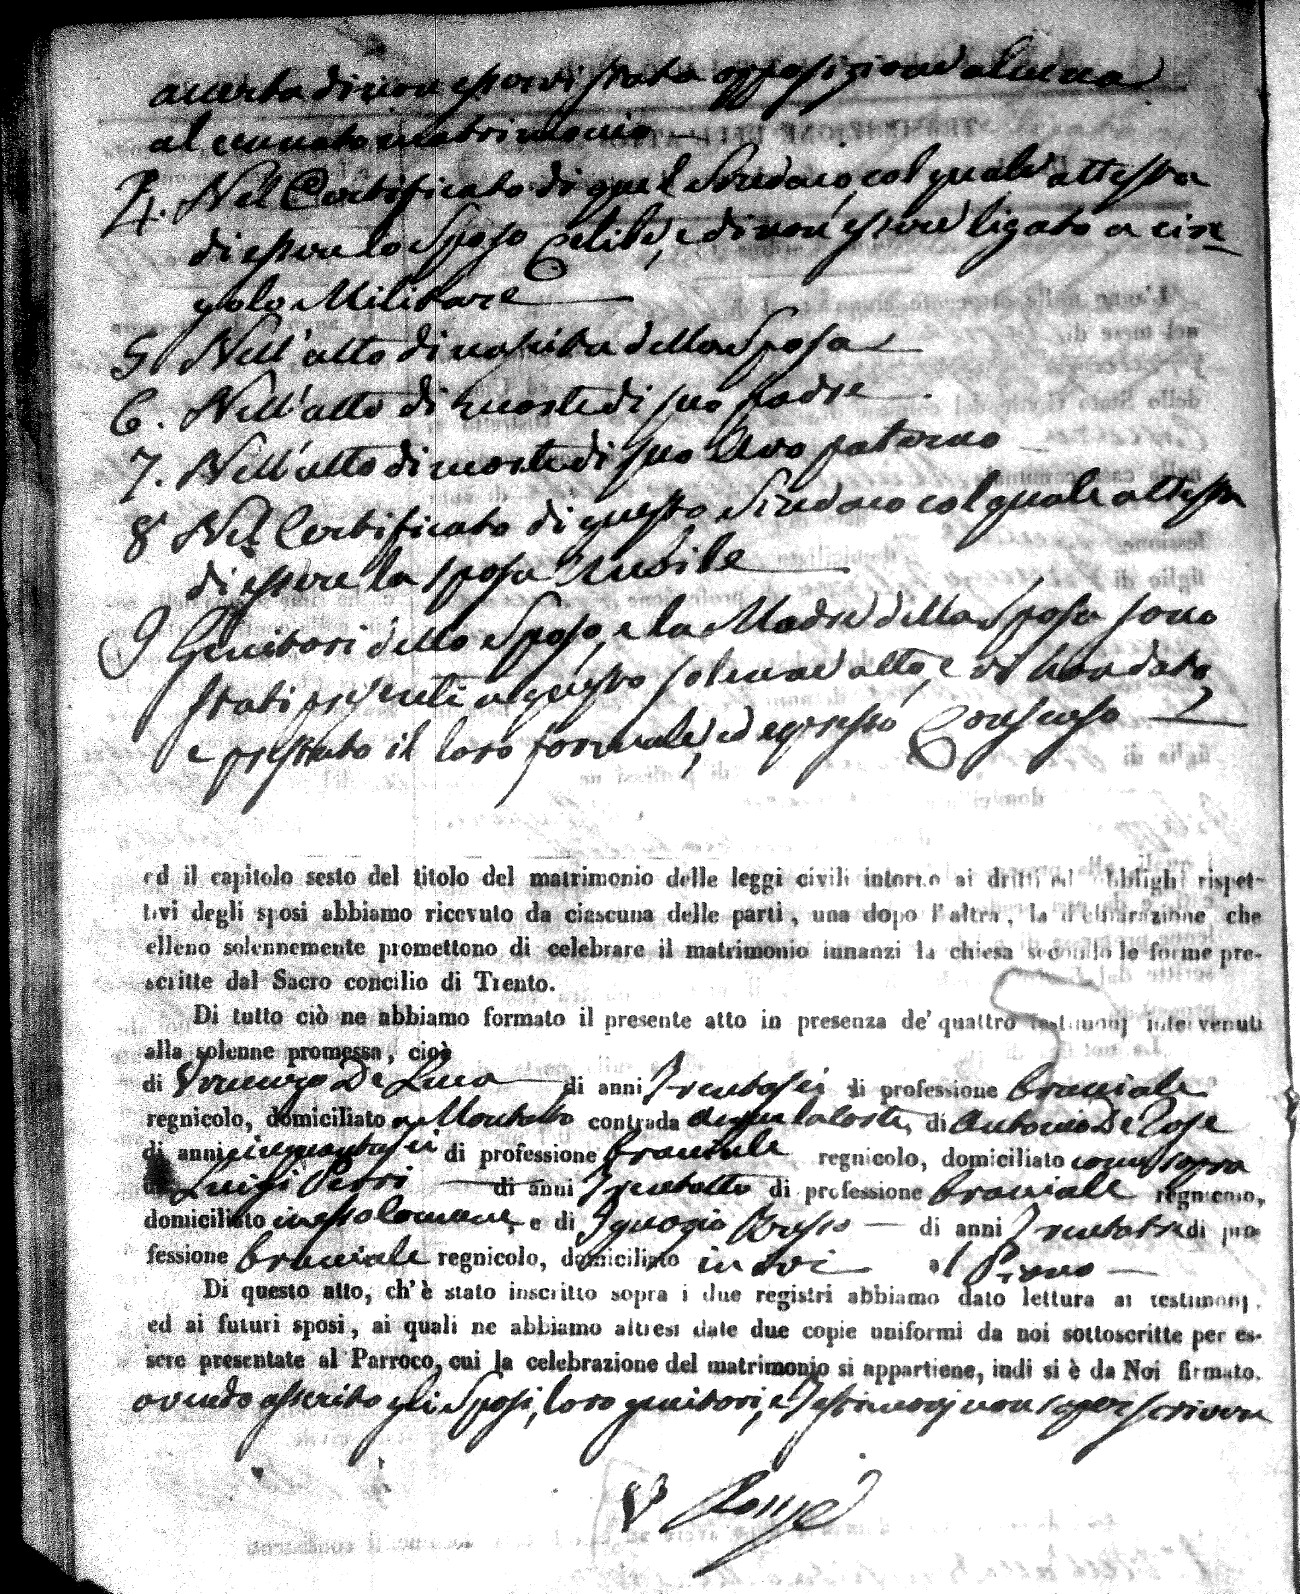 accerta di non esservi stata opposizione alcuna
al cennato matrimonio
4. Nel Certificato di quel Sindaco col quale attesta
di essere lo Sposo Celibe, e di non essere ligato a cin
golo Militare
5 Nell'atto di nascita della Sposa
6. Nell'atto di morte di suo padre.
7. Nell'atto di morte di suo Avo paterno
8 Nel Certificato di questo Sindaco col quale attesta
di essere la sposa Nubile
9 Genitori dello Sposo, e la Madre della Sposa sono
stati presenti a questo solenne atto, e vi han dato
e prestato il loro formale, ed espresso Consenso
ed il capitolo sesto del titolo del matrimonio delle leggi civili intorno ai dritti ed obblighi rispet-
tivi degli sposi abbiamo ricevuto da ciascuna delle parti, una dopo l'altra, la dichiarazione che
elleno solennemente promettono di celebrare il matrimonio innanzi la chiesa secondo le forme pre-
scritte dal Sacro concilio di Trento.
Di tutto ciò ne abbiamo formato il presente atto in presenza de' quattro testimonj intervenuti
alla solenne promessa, cioè
di Vincenzo De Luca di anni Trentasei di professione bracciale
regnicolo, domiciliato a Montalto contrada di Antonio De Rose
di anni cinquantasei di professione bracciale regnicolo, domiciliato come sopra
di Luigi Perri di anni Trentotto di professione bracciale regnicolo,
domiciliato in esso Comune, e di Ignazio di anni Trentatre di pro-
fessione bracciale regnicolo, domiciliato in
Di questo atto, ch'è stato inscritto sopra i due registri abbiamo dato lettura ai testimonj,
ed ai futuri sposi, ai quali ne abbiamo altresì date due copie uniformi da noi sottoscritte per es-
sere presentate al Parroco, cui la celebrazione del matrimonio si appartiene, indi si è da Noi firmato.
avendo asserito gli Sposi, loro genitori, e Testimonj non saper scrivere